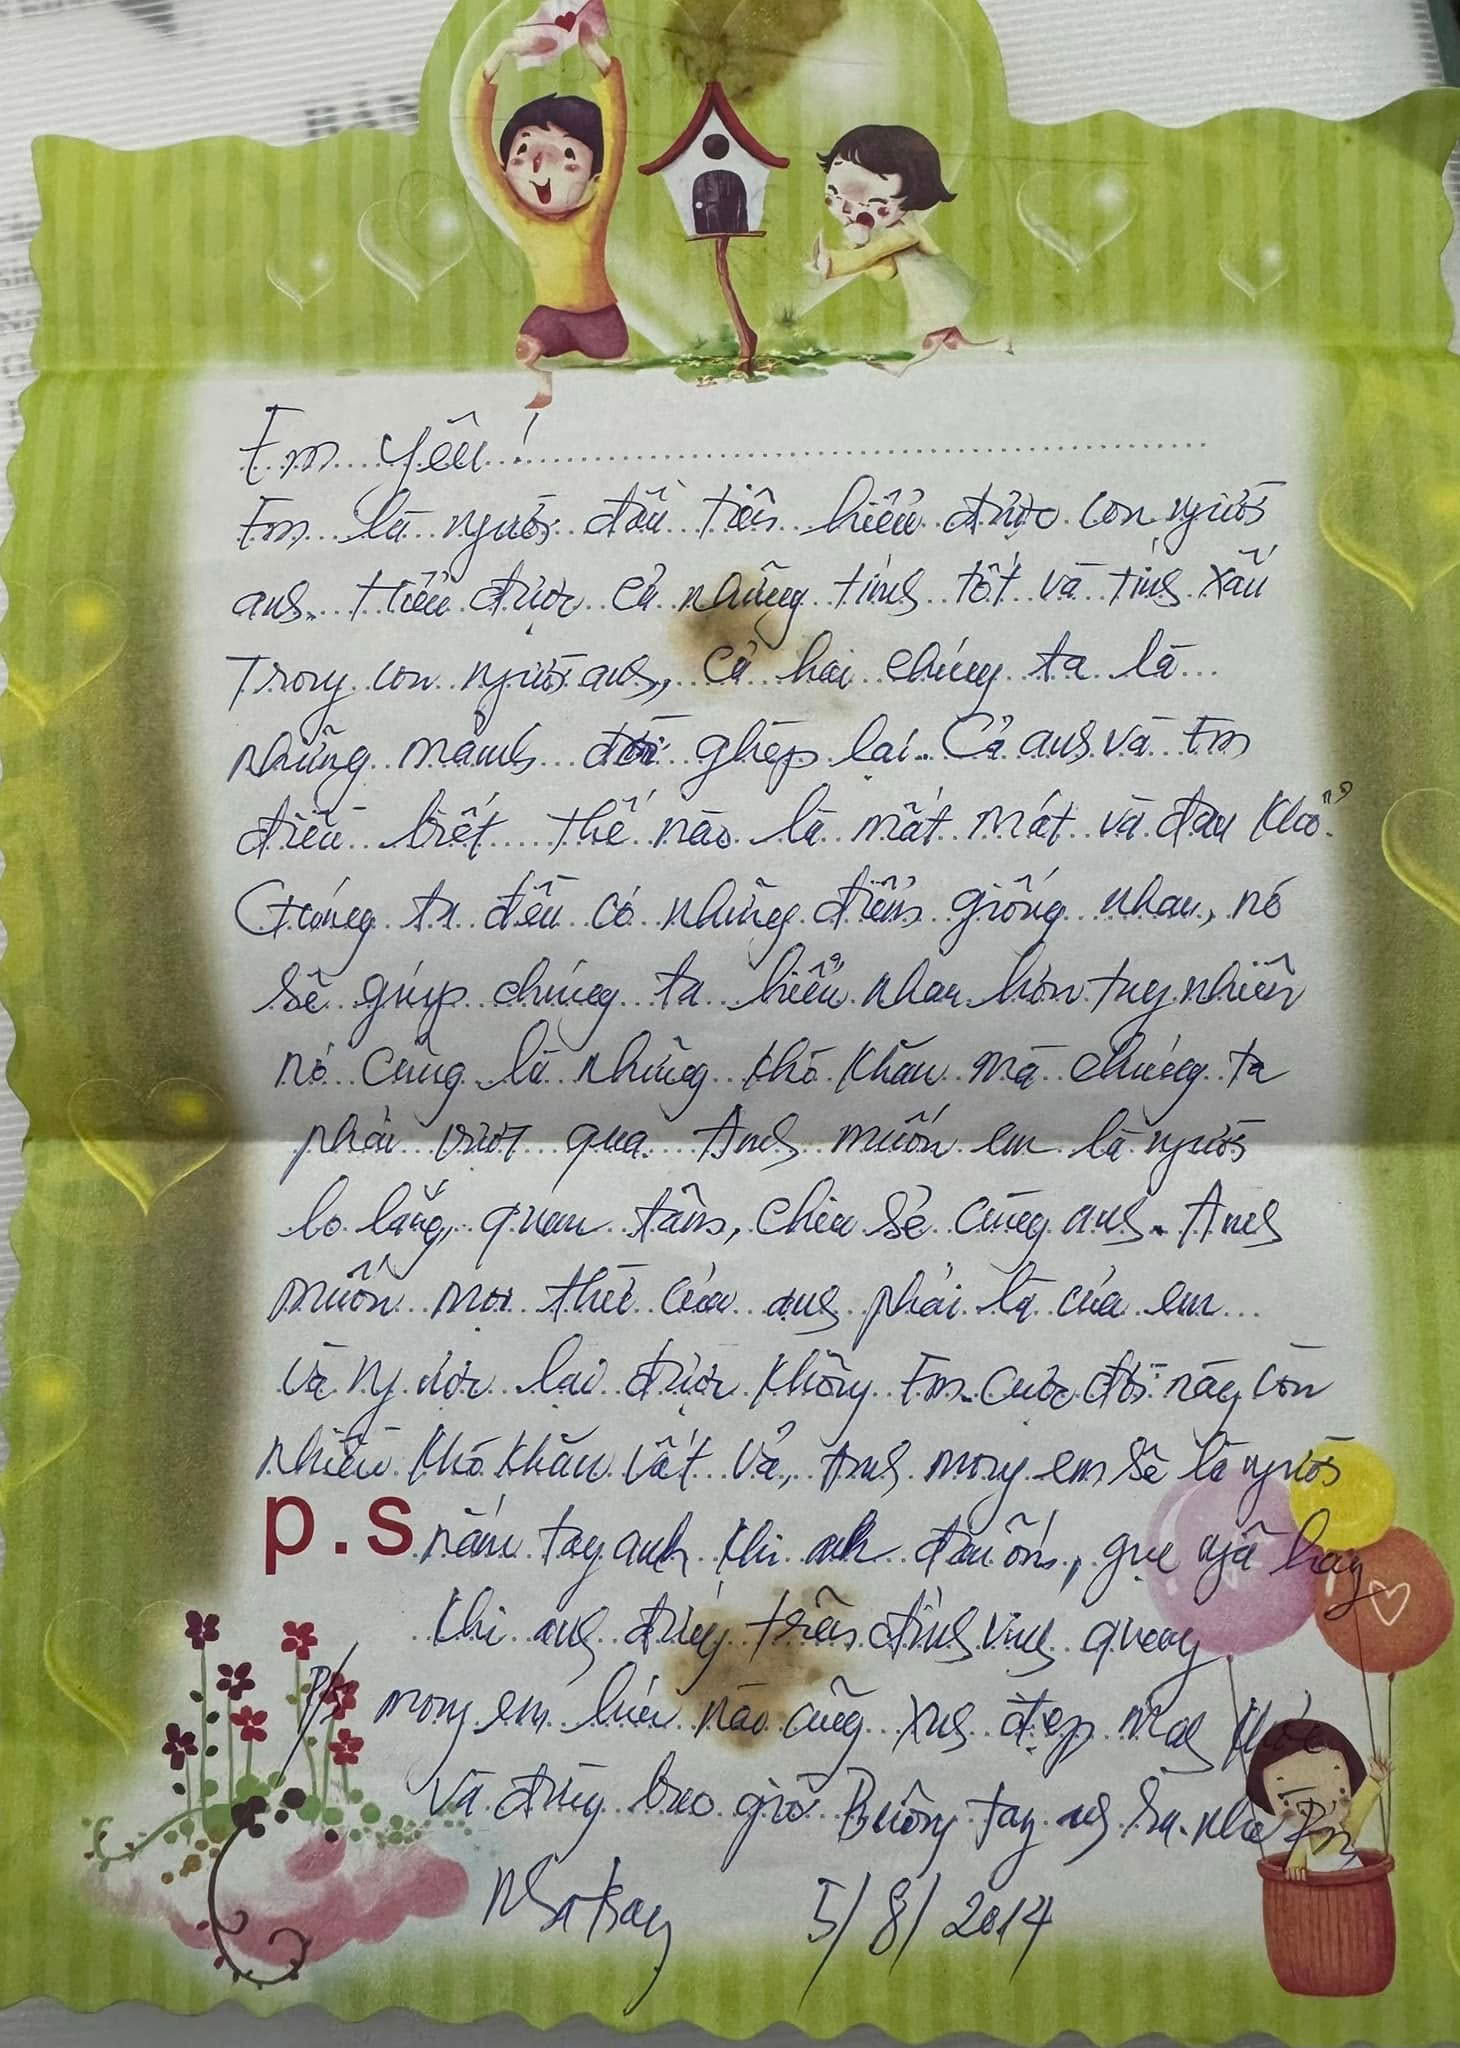 Em yêu!
Em là người đầu tiên hiểu được con người
anh. Hiểu được cả những tính tốt và tính xấu
Trong con người anh, Cả hai chúng ta là
những mảnh đời ghép lại. Cả anh và Em
điều biết thế nào là mất mát và đau khổ.
Chúng ta đều có những điểm giống nhau, nó
sẽ giúp chúng ta hiểu nhau hơn tuy nhiên
nó cũng là những khó khăn mà chúng ta
phải vượt qua. Anh muốn em là người
lo lắng, quan tâm, chia sẻ cùng anh. Anh
muốn mọi thứ của anh phải là của em
và ngược lại được không Em. Cuộc đời này còn
nhiều khó khăn vất vả, Anh mong em sẽ là người
p.s nắm tay anh khi anh đau ốm, gục ngã hay
khi anh đứng trên đỉnh vinh quang
P/s mong em lúc nào cũng xinh đẹp mạnh khỏe
Và đừng bao giờ Buông tay anh ra nhé Em
5/8/2014